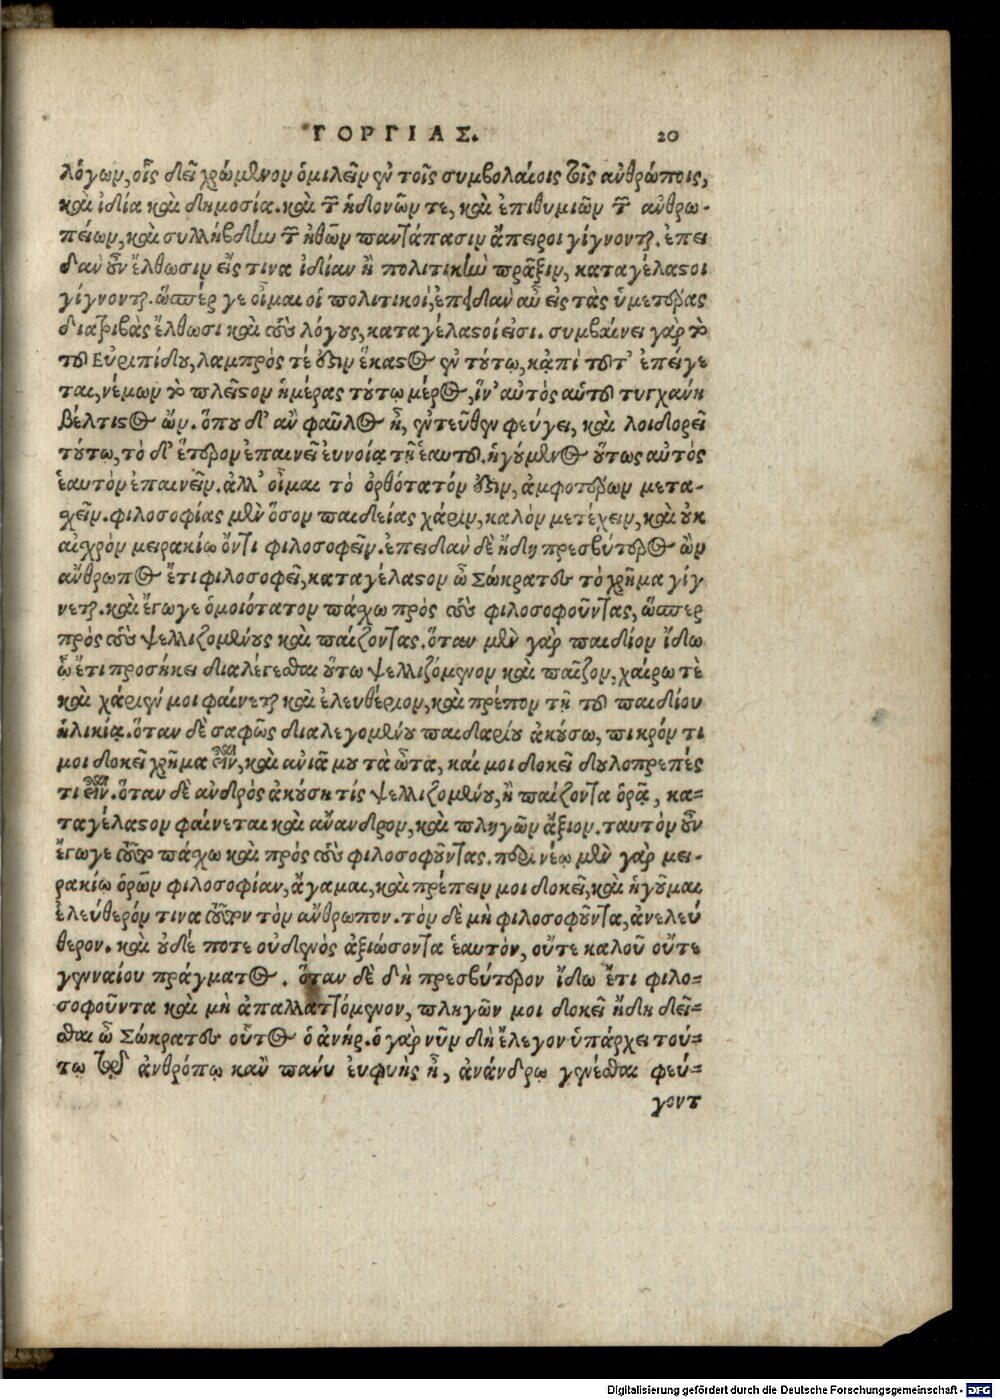 ΓΟΡΓΙΑΣ. 20
λόγων, οἷς δεῖ χρώμενον ὁμιλεῖν ἐν τοῖς συμβολαίοις τοῖς ἀνθρώποις,
καὶ ἰδία καὶ δημοσία. καὶ τῶν ἡδονῶν τε, καὶ ἐπιθυμιῶν τῶν ἀνθρω-
πείων, καὶ συλλήβδην τῶν ἠθῶν παντάπασιν ἄπειροι γίγνονται. ἐπει
δὰν οὖν ἔλθωσιν εἴς τινα ἰδίαν ἢ πολιτικὴν πρᾶξιν, καταγέλαστοι
γίγνονται. ὥσπέρ γε οἶμαι οἱ πολιτικοί, ἐπειδὰν αὖ εἰς τὰς ὑμετέρας
διατριβὰς ἔλθωσι καὶ τοὺς λόγους, καταγέλαστοί εἰσι. συμβαίνει γὰρ τὸ
τοῦ Εὐριπίδου, λαμπρὸς τέ ἐστιν ἕκαστος ἐν τούτω, κἀπί τοῦτ' ἐπείγε
ται, νέμων τὸ πλεῖστον ἡμέρας τούτω μέρος, ἵν' αὐτὸς αὑτοῦ τυγχάνη
βέλτιστος ὤν. ὅπου δ' ἂν φαῦλος ᾖ, ἐντεῦθεν φεύγει, καὶ λοιδορεῖ
τούτω, τὸ δ' ἕτερον ἐπαινεῖ εὐνοίᾳ τῇ ἑαυτοῦ. ἡγούμενος οὕτως αὐτὸς
ἑαυτὸν ἐπαινεῖν. ἀλλ' οἶμαι τὸ ὀρθότατόν ἐστιν, ἀμφοτέρων μετα-
χεῖν. φιλοσοφίας μὲν ὅσον παιδείας χάριν, καλὸν μετέχειν, καὶ οὐκ
αἰχρὸν μειρακίω ὄντι φιλοσοφεῖν. ἐπειδὰν δὲ ἤδη πρεσβύτερος ὢν
ἄνθρωπος ἔτι φιλοσοφεῖ, καταγέλαστον ὦ Σώκρατες τὸ χρῆμα γίγ
νεται. καὶ ἔγωγε ὁμοιότατον πάσχω πρὸς τοὺς φιλοσοφοῦντας, ὥσπερ
πρὸς τοὺς ψελλιζομένους καὶ παίζοντας. ὅταν μὲν γὰρ παιδίον ἴδω
ᾧ ἔτι προσήκει διαλέγεσθαι οὕτω ψελλιζόμενον καὶ παῖζον, χαίρω τὲ
καὶ χάριεν μοι φαίνεται καὶ ἐλευθέριον, καὶ πρέπον τῇ τοῦ παιδίου
ἡλικίᾳ. ὅταν δὲ σαφῶς διαλεγομένου παιδαρίου ἀκούσω, πικρόν τι
μοι δοκεῖ χρῆμα εἶναι, καὶ ἀνιᾷ μου τὰ ὦτα, καί μοι δοκεῖ δουλοπρεπές
τι εἶναι. ὅταν δὲ ἀνδρὸς ἀκούσῃ τίς ψελλιζομένου, ἢ παίζοντα ὁρᾷ, κα-
ταγέλαστον φαίνεται καὶ ἄνανδρον, καὶ πληγῶν ἄξιον. ταυτὸν οὖν
ἔγωγε τοῦτο πάσχω καὶ πρὸς τοὺς φιλοσοφοῦντας. παρὰ νέῳ μὲν γὰρ μει-
ρακίω ὁρῶν φιλοσοφίαν, ἄγαμαι, καὶ πρέπειν μοι δοκεῖ, καὶ ἡγοῦμαι
ἐλεύθερόν τινα τοῦτον τὸν ἄνθρωπον. τὸν δὲ μὴ φιλοσοφοῦντα, ἀνελεύ
θερον. καὶ οὐδέ ποτε οὐδενὸς ἀξιώσοντα ἑαυτὸν, οὔτε καλοῦ οὔτε
γενναίου πράγματος. ὅταν δὲ δὴ πρεσβύτερον ἴδω ἔτι φιλο-
σοφοῦντα καὶ μὴ ἀπαλλαττόμενον, πληγῶν μοι δοκεῖ ἤδη δεῖ-
σθαι ὦ Σώκρατες οὗτος ὁ ἀνήρ. ὁ γὰρ νῦν δὴ ἔλεγον ὑπάρχει τού-
τῳ τῷ ἀνθρόπῳ κἂν πάνυ εὐφυὴς ᾖ, ἀνάνδρῳ γενέσθαι φεύ-
γοντ
Digitalisierung gefördert durch die Deutsche Forschungsgemeinschaft - DFG